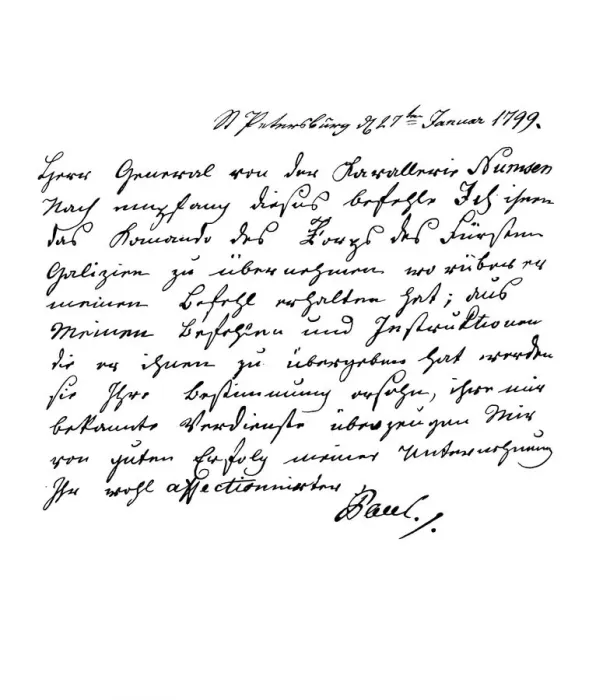 St Petersburg d 27ten Januar 1799.
Herr General von der Kavallerie Numsen
Nach empfang dieses befehle Ich ihnen
das Komando des Korps des Fürsten
Galizien zu übernehmen worüber er
meinen Befehl erhalten hat; aus
Meinen Befehlen und Instruktionen
die er ihnen zu übergeben hat werden
sie Ihre Bestimmung ersehn, ihre mir
bekannte Verdienste überzeugen Mir
von guten Erfolg meiner Unternehmung
Ihr wohl affectionnirter
Paul.